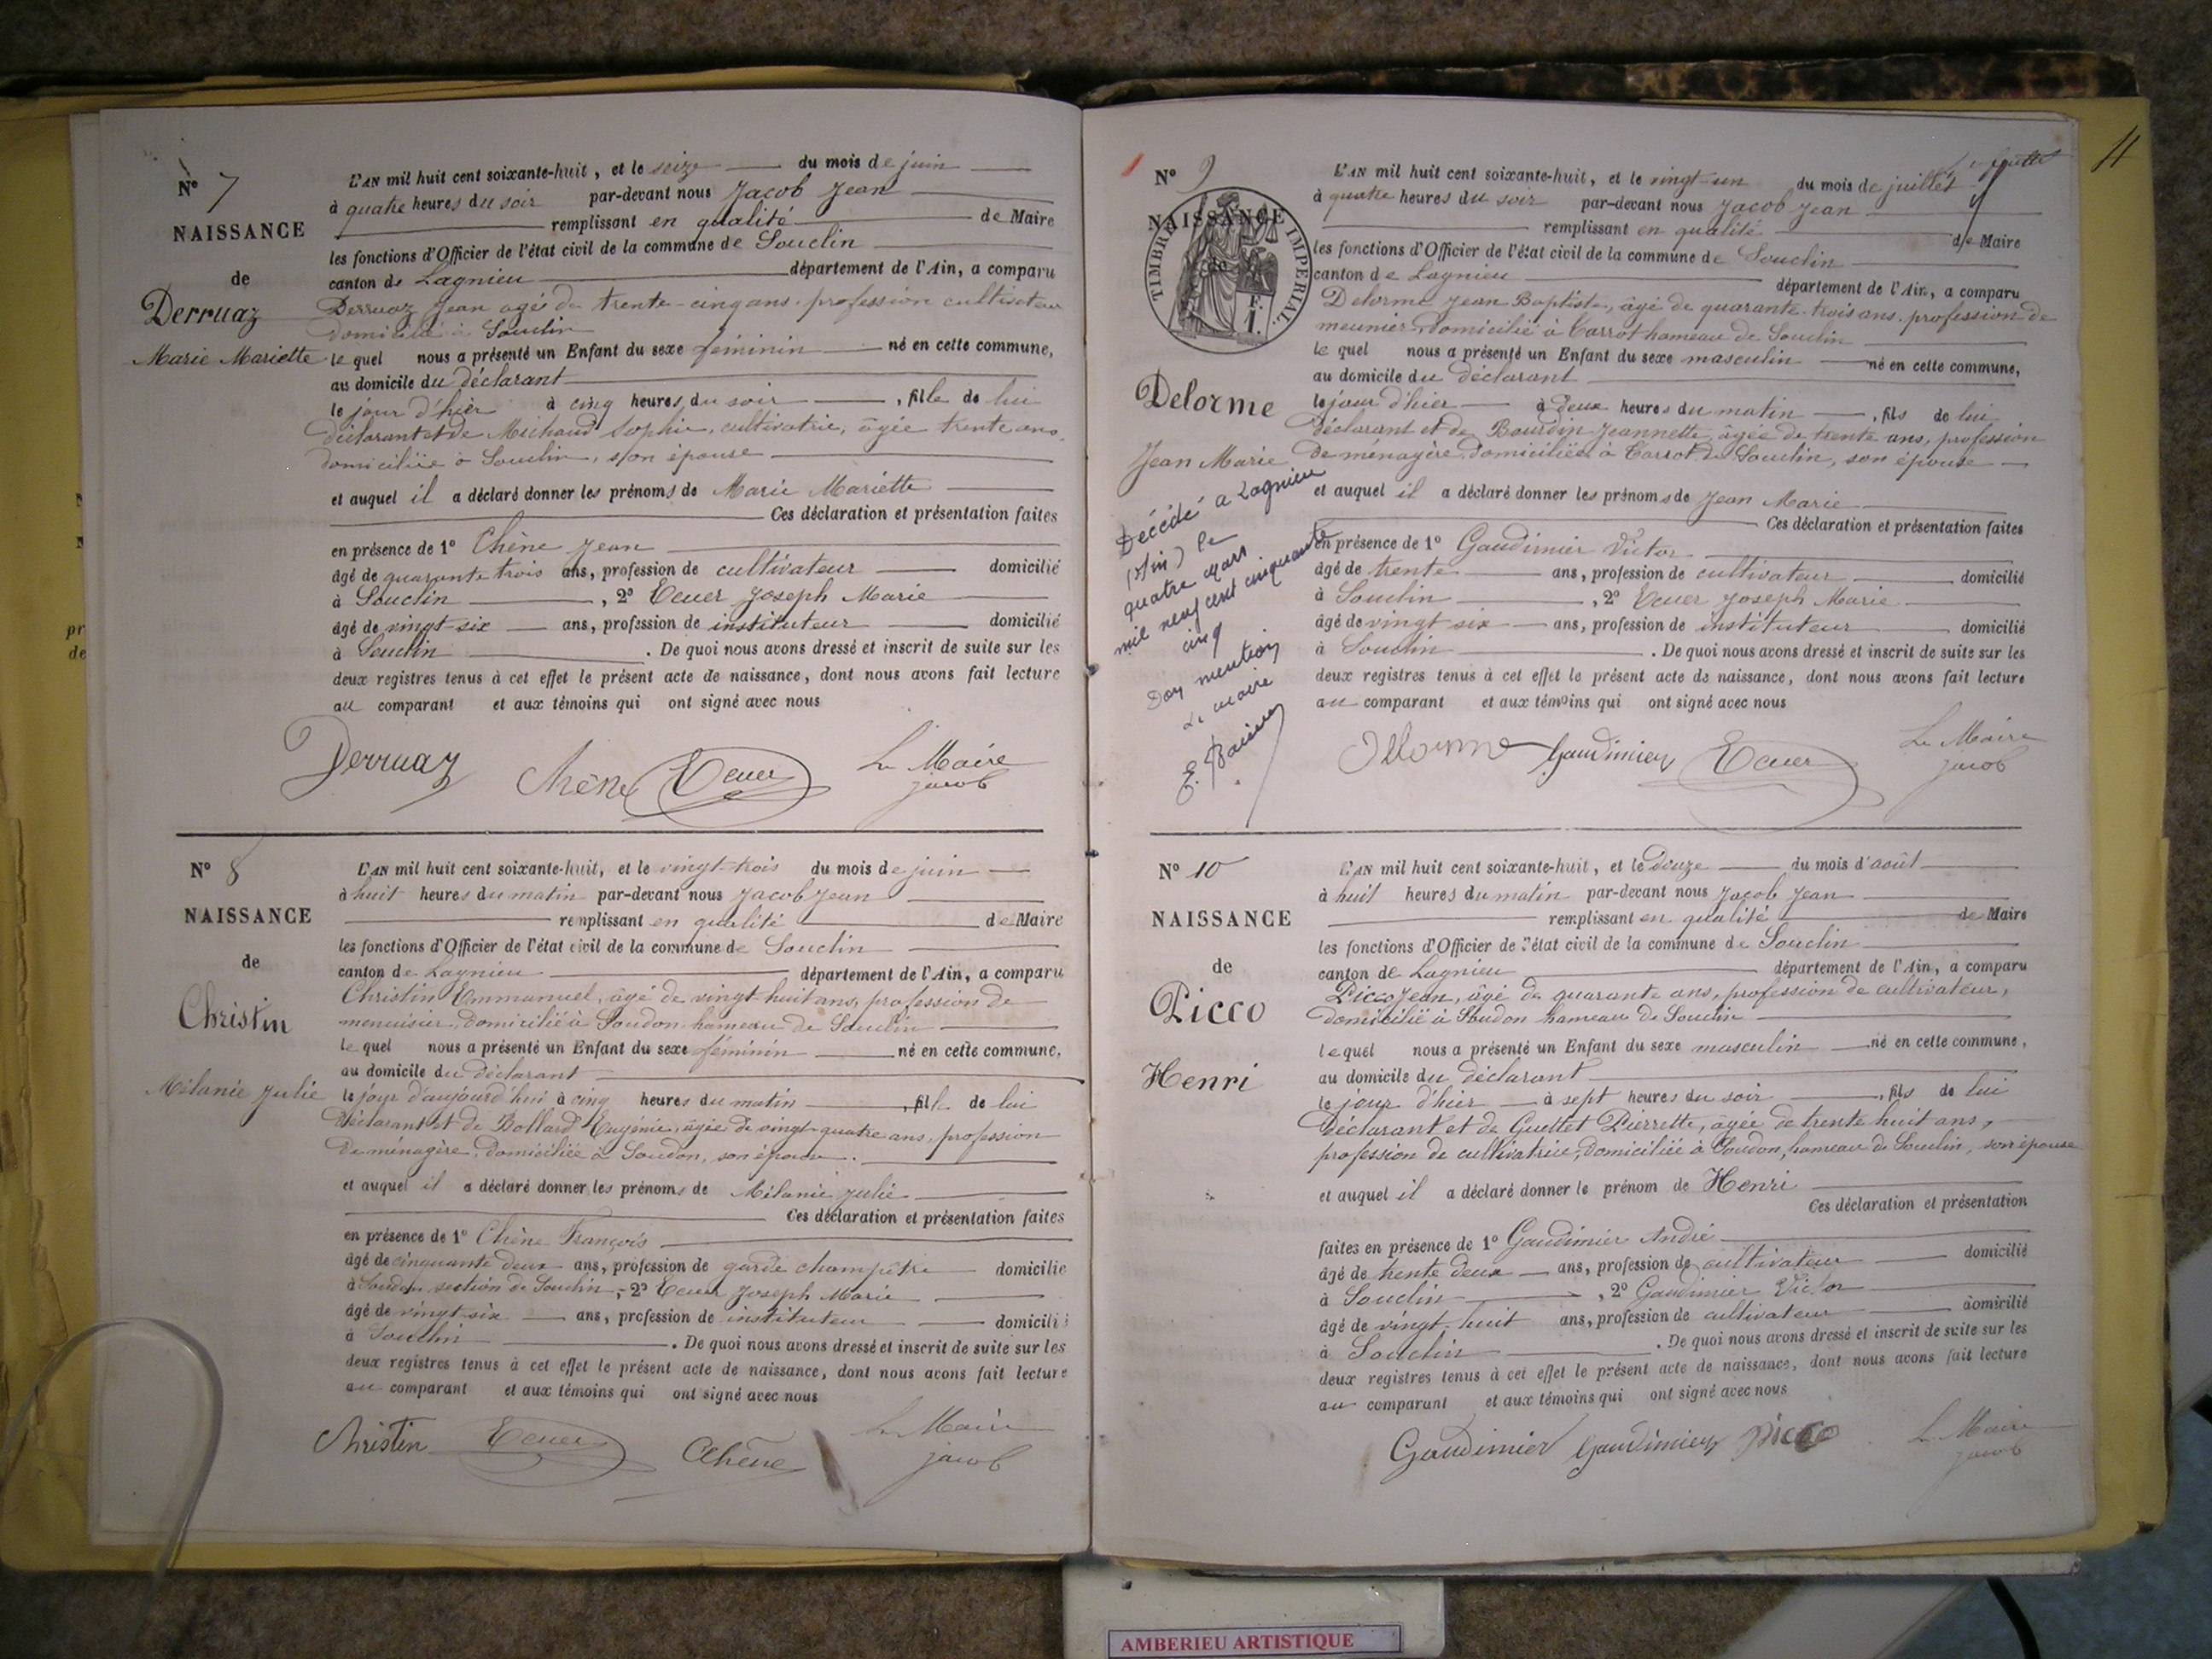 N° 7
NAISSANCE
de
Derruaz
Marie Mariette
L'AN mil huit cent soixante-huit, et le seize du mois de juin
à quatre heures du soir par-devant nous Jacob Jean
remplissant en qualité de Maire
les fonctions d'Officier de l'état civil de la commune de Souclin
canton de Lagnieu département de l'Ain, a comparu
Derruaz Jean agé de trente-cinq ans, profession cultivateur
domicilié à Souclin
le quel nous a présenté un Enfant du sexe féminin né en cette commune,
au domicile du déclarant
le jour d'hier à cinq heures du soir, fille de lui
déclarant et de Michaud Sophie, cultivatrice, âgée trente ans,
domiciliée à Souclin, son épouse
et auquel il a déclaré donner les prénoms de Marie Mariette
Ces déclaration et présentation faites
en présence de 1° Chêne Jean
âgé de quarante trois ans, profession de cultivateur domicilié
à Souclin, 2° Ecuer Joseph Marie
âgé de vingt-six ans, profession de instituteur domicilié
à Souclin. De quoi nous avons dressé et inscrit de suite sur les
deux registres tenus à cet effet le présent acte de naissance, dont nous avons fait lecture
au comparant et aux témoins qui ont signé avec nous
Derruaz Chêne Ecuer Le Maire
Jacob
N° 8
NAISSANCE
de
Christin
Mélanie Julie
L'AN mil huit cent soixante-huit, et le vingt-trois du mois de juin
à huit heures du matin par-devant nous Jacob Jean
remplissant en qualité de Maire
les fonctions d'Officier de l'état civil de la commune de Souclin
canton de Lagnieu département de l'Ain, a comparu
Christin Emmanuel, âgé de vingt-huit ans, profession de
menuisier, domicilié à Soudon hameau de Souclin
le quel nous a présenté un Enfant du sexe féminin né en cette commune,
au domicile du déclarant
le jour d'aujourd'hui à cinq heures du matin, fille de lui
déclarant et de Bollard Eugénie, âgée de vingt-quatre ans, profession
de ménagère, domiciliée à Soudon, son épouse.
et auquel il a déclaré donner les prénoms de Mélanie Julie
Ces déclaration et présentation faites
en présence de 1° Chêne François
âgé de cinquante deux ans, profession de garde champêtre domicilié
à Soudon section de Souclin, 2° Ecuer Joseph Marie
âgé de vingt-six ans, profession de instituteur domicilié
à Souclin. De quoi nous avons dressé et inscrit de suite sur les
deux registres tenus à cet effet le présent acte de naissance, dont nous avons fait lecture
au comparant et aux témoins qui ont signé avec nous
Christin Ecuer Chêne Le Maire
Jacob
11
N° 9
NAISSANCE
de
TIMBRE IMPERIAL
Delorme
Jean Marie
Décédé à Lagnieu
(Ain) le
quatre mars
mil neuf cent cinquante
cinq
Don mention
Le maire
L'AN mil huit cent soixante-huit, et le vingt-un du mois de juillet
à quatre heures du soir par-devant nous Jacob Jean
remplissant en qualité de Maire
les fonctions d'Officier de l'état civil de la commune de Souclin
canton de Lagnieu département de l'Ain, a comparu
Delorme Jean Baptiste, âgé de quarante-trois ans, profession de
meunier, domicilié à Carrot hameau de Souclin
le quel nous a présenté un Enfant du sexe masculin né en cette commune,
au domicile du déclarant
le jour d'hier à deux heures du matin, fils de lui
déclarant et de Bourdin Jeannette, âgée de trente ans, profession
de ménagère domiciliée à Carrot de Souclin, son épouse
et auquel il a déclaré donner les prénoms de Jean Marie
Ces déclaration et présentation faites
en présence de 1° Gaudimier Victor
âgé de trente ans, profession de cultivateur domicilié
à Souclin, 2° Ecuer Joseph Marie
âgé de vingt six ans, profession de instituteur domicilié
à Souclin. De quoi nous avons dressé et inscrit de suite sur les
deux registres tenus à cet effet le présent acte de naissance, dont nous avons fait lecture
au comparant et aux témoins qui ont signé avec nous
Delorme Gaudimier Ecuer Le Maire
Jacob
N° 10
NAISSANCE
de
Picco
Henri
L'AN mil huit cent soixante-huit, et le douze du mois d'août
à huit heures du matin par-devant nous Jacob Jean
remplissant en qualité de Maire
les fonctions d'Officier de l'état civil de la commune de Souclin
canton de Lagnieu département de l'Ain, a comparu
Picco Jean, âgé de quarante ans, profession de cultivateur,
domicilié à Soudon hameau de Souclin
le quel nous a présenté un Enfant du sexe masculin né en cette commune,
au domicile du déclarant
le jour d'hier à sept heures du soir, fils de lui
déclarant et de Guettet Pierrette, âgée de trente huit ans,
profession de cultivatrice, domiciliée à Soudon, hameau de Souclin, son épouse
et auquel il a déclaré donner le prénom de Henri
Ces déclaration et présentation
faites en présence de 1° Gaudimier André
âgé de trente deux ans, profession de cultivateur domicilié
à Souclin, 2° Gaudimier Victor
âgé de vingt-huit ans, profession de cultivateur domicilié
à Souclin. De quoi nous avons dressé et inscrit de suite sur les
deux registres tenus à cet effet le présent acte de naissance, dont nous avons fait lecture
au comparant et aux témoins qui ont signé avec nous
Gaudimier Gaudimier Picco Le Maire
Jacob
AMBERIEU ARTISTIQUE